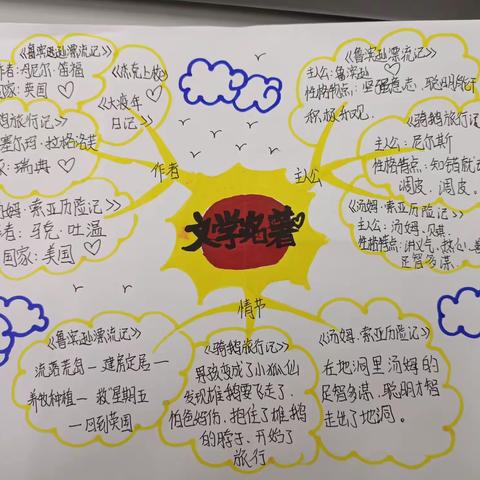 《鲁宾逊漂流记》
者：丹尼尔·笛福
国家：英国
《木克上校》
《大渡年
日记》
鹅旅行记》
塞尔玛·拉格洛芙
家：瑞典
汤姆·索亚历险记》
者：马克·吐温
国家：美国
作者
《鲁宾逊漂流记》
主人公：鲁宾逊
性格特点：坚强意志、聪明能干
积极乐观.
《骑鹅旅行记》
主人公：尼尔斯
性格特点：知错就
调皮、调皮。
《汤姆·索亚历险记》
主人公：汤姆、贝琪
性格特点：讲义气、
足智多谋
主人公
文学名著
情节
《鲁宾逊漂流记》
流落荒岛一建房定居一
养牧种植一救星期五
一回到英国
《骑鹅旅行记》
男孩变成了小狐仙
发现雄鹅要飞走了.
抱住了雄鹅
的脖子.开始了
旅行
《汤姆·索亚历险记》
在地洞里汤姆的
足智多谋、聪明才智
走出了地洞。